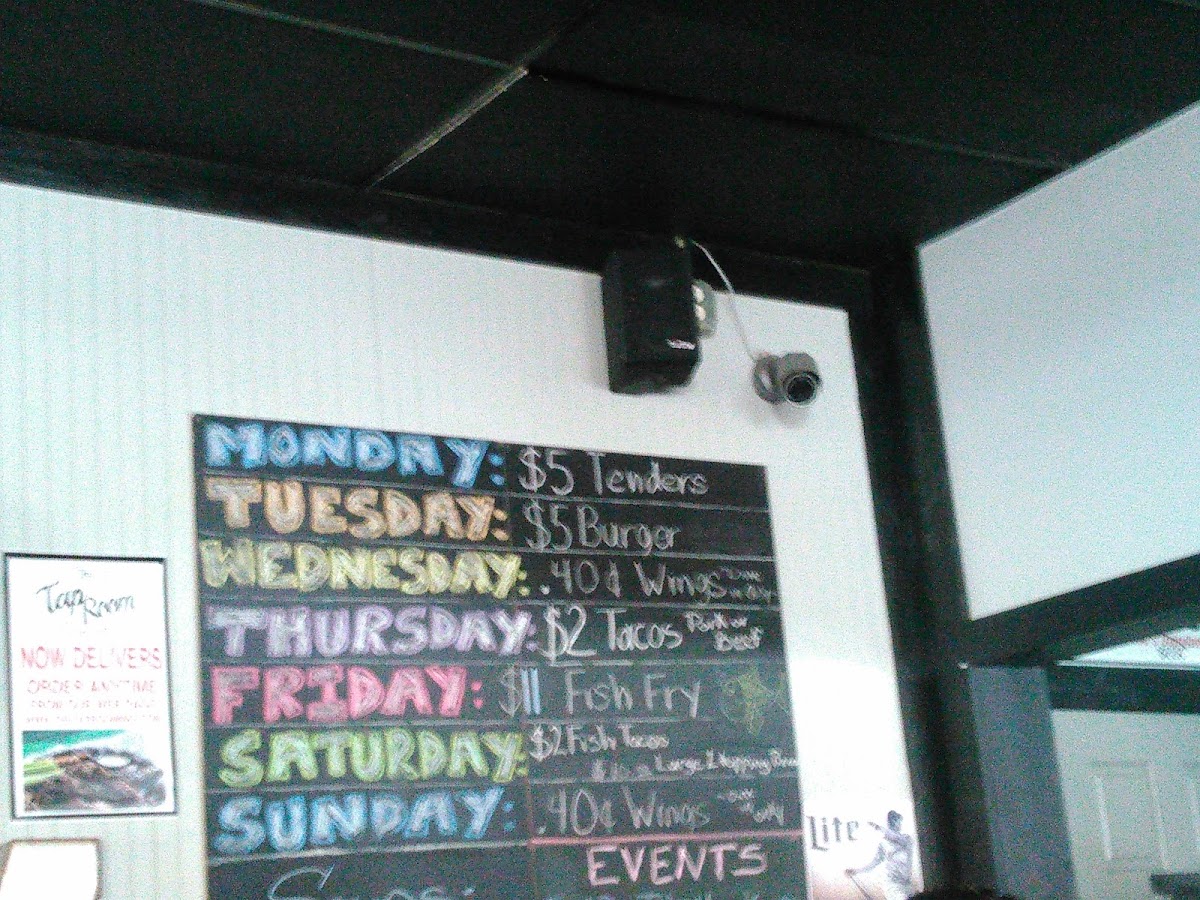 MONDAY: $5 Tenders
TUESDAY: $5 Burger
WEDNESDAY: .40¢ Wings
THURSDAY: $2 Tacos Pork or Beef
FRIDAY: $11 Fish Fry
SATURDAY: $2 Fish Tacos
Large 1 Topping
SUNDAY: .40¢ Wings
EVENTS
The
Tap Room
NOW DELIVERS
ORDER ANYTIME
Lite